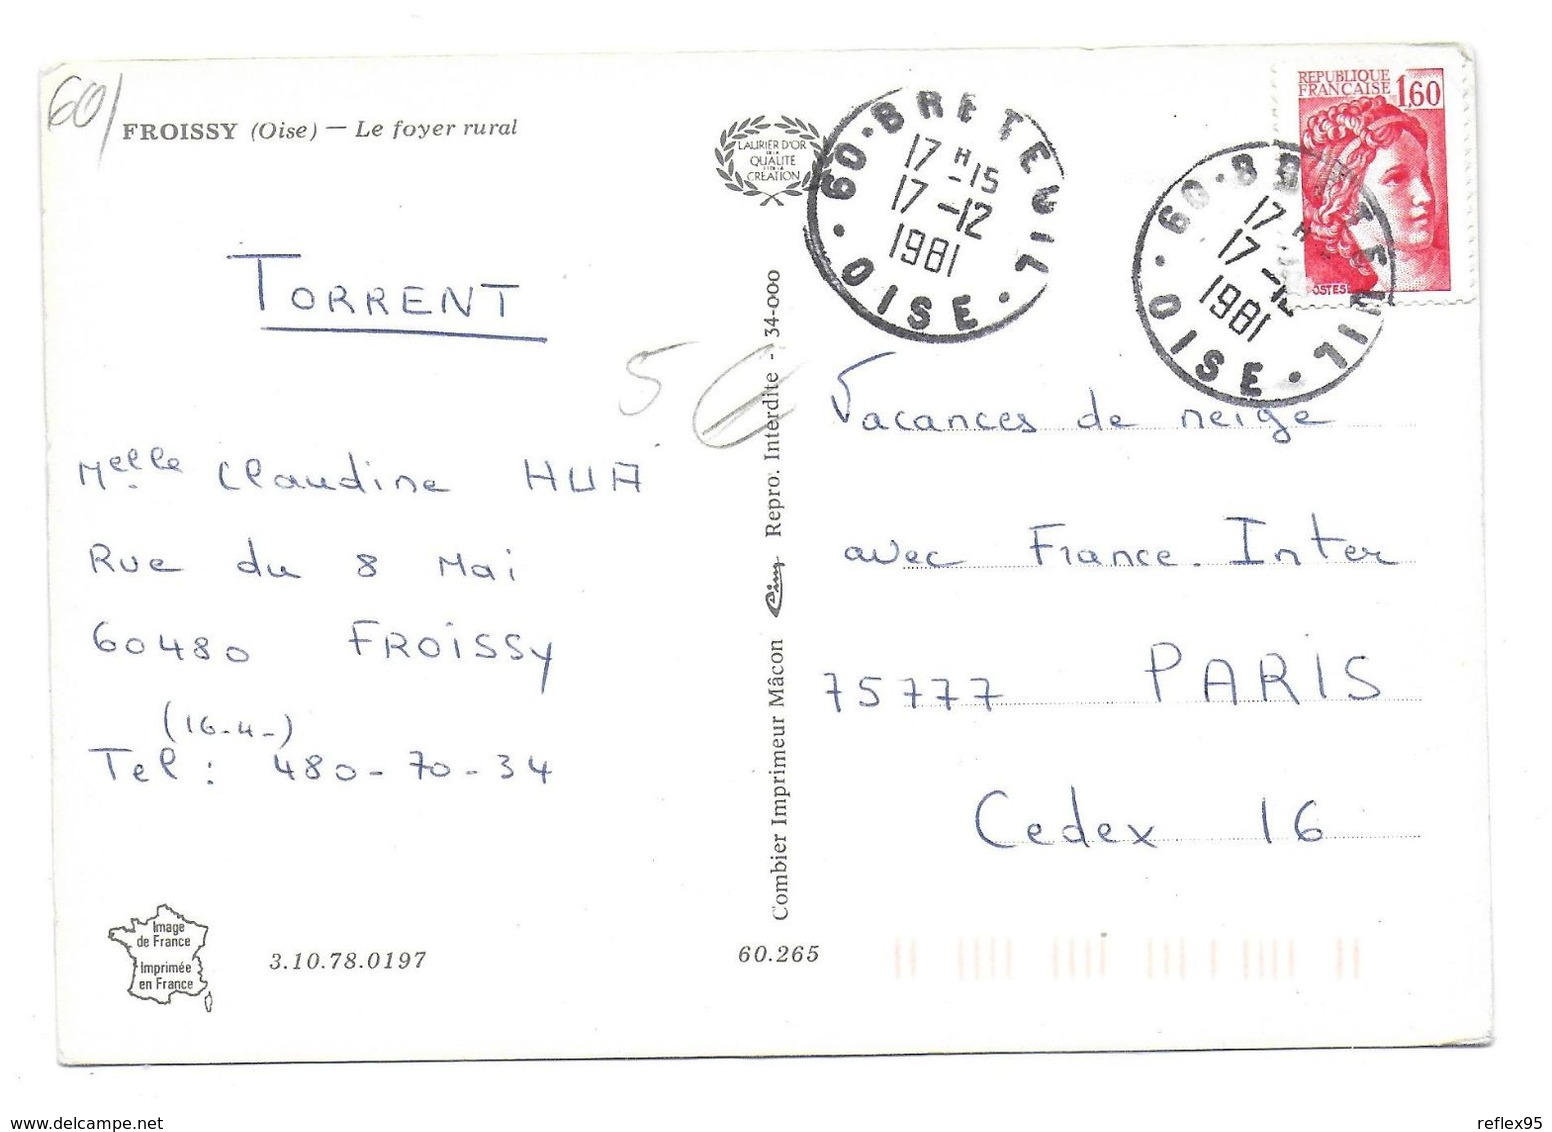 60/
FROISSY (Oise) — Le foyer rural
LAURIER D'OR
DE LA
QUALITÉ
ET DE LA
CRÉATION
60 · BRETEUIL · OISE ·
17 H -15
17 -12
1981
60 · BRETEUIL · OISE ·
17 H
17 -12
1981
REPUBLIQUE
FRANÇAISE 1,60
POSTES
TORRENT
5 €
Melle Claudine HUA
Rue du 8 Mai
60480 FROISSY
(16-4-)
Tel : 480-70-34
Vacances de neige
avec France. Inter
75777 PARIS
Cedex 16
Combier Imprimeur Mâcon Cim Repro. Interdite - 34-000
Image
de France
Imprimée
en France
3.10.78.0197
60.265
reflex95